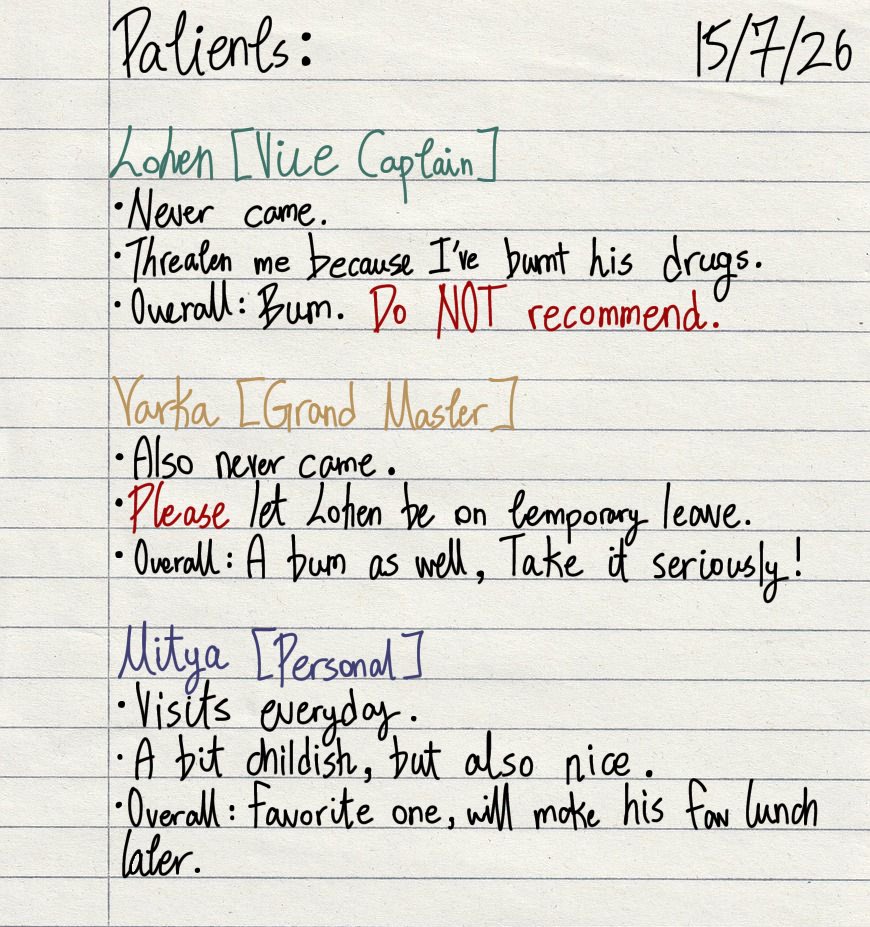 Patients: 15/7/26
Lohen [Vice Captain]
•Never came.
•Threaten me because I've burnt his drugs.
•Overall: Bum. Do NOT recommend.
Varka [Grand Master]
•Also never came.
•Please let Lohen be on temporary leave.
•Overall: A bum as well, Take it seriously!
Mitya [Personal]
•Visits everyday.
•A bit childish, but also nice.
•Overall: Favorite one, will make his fav lunch
later.